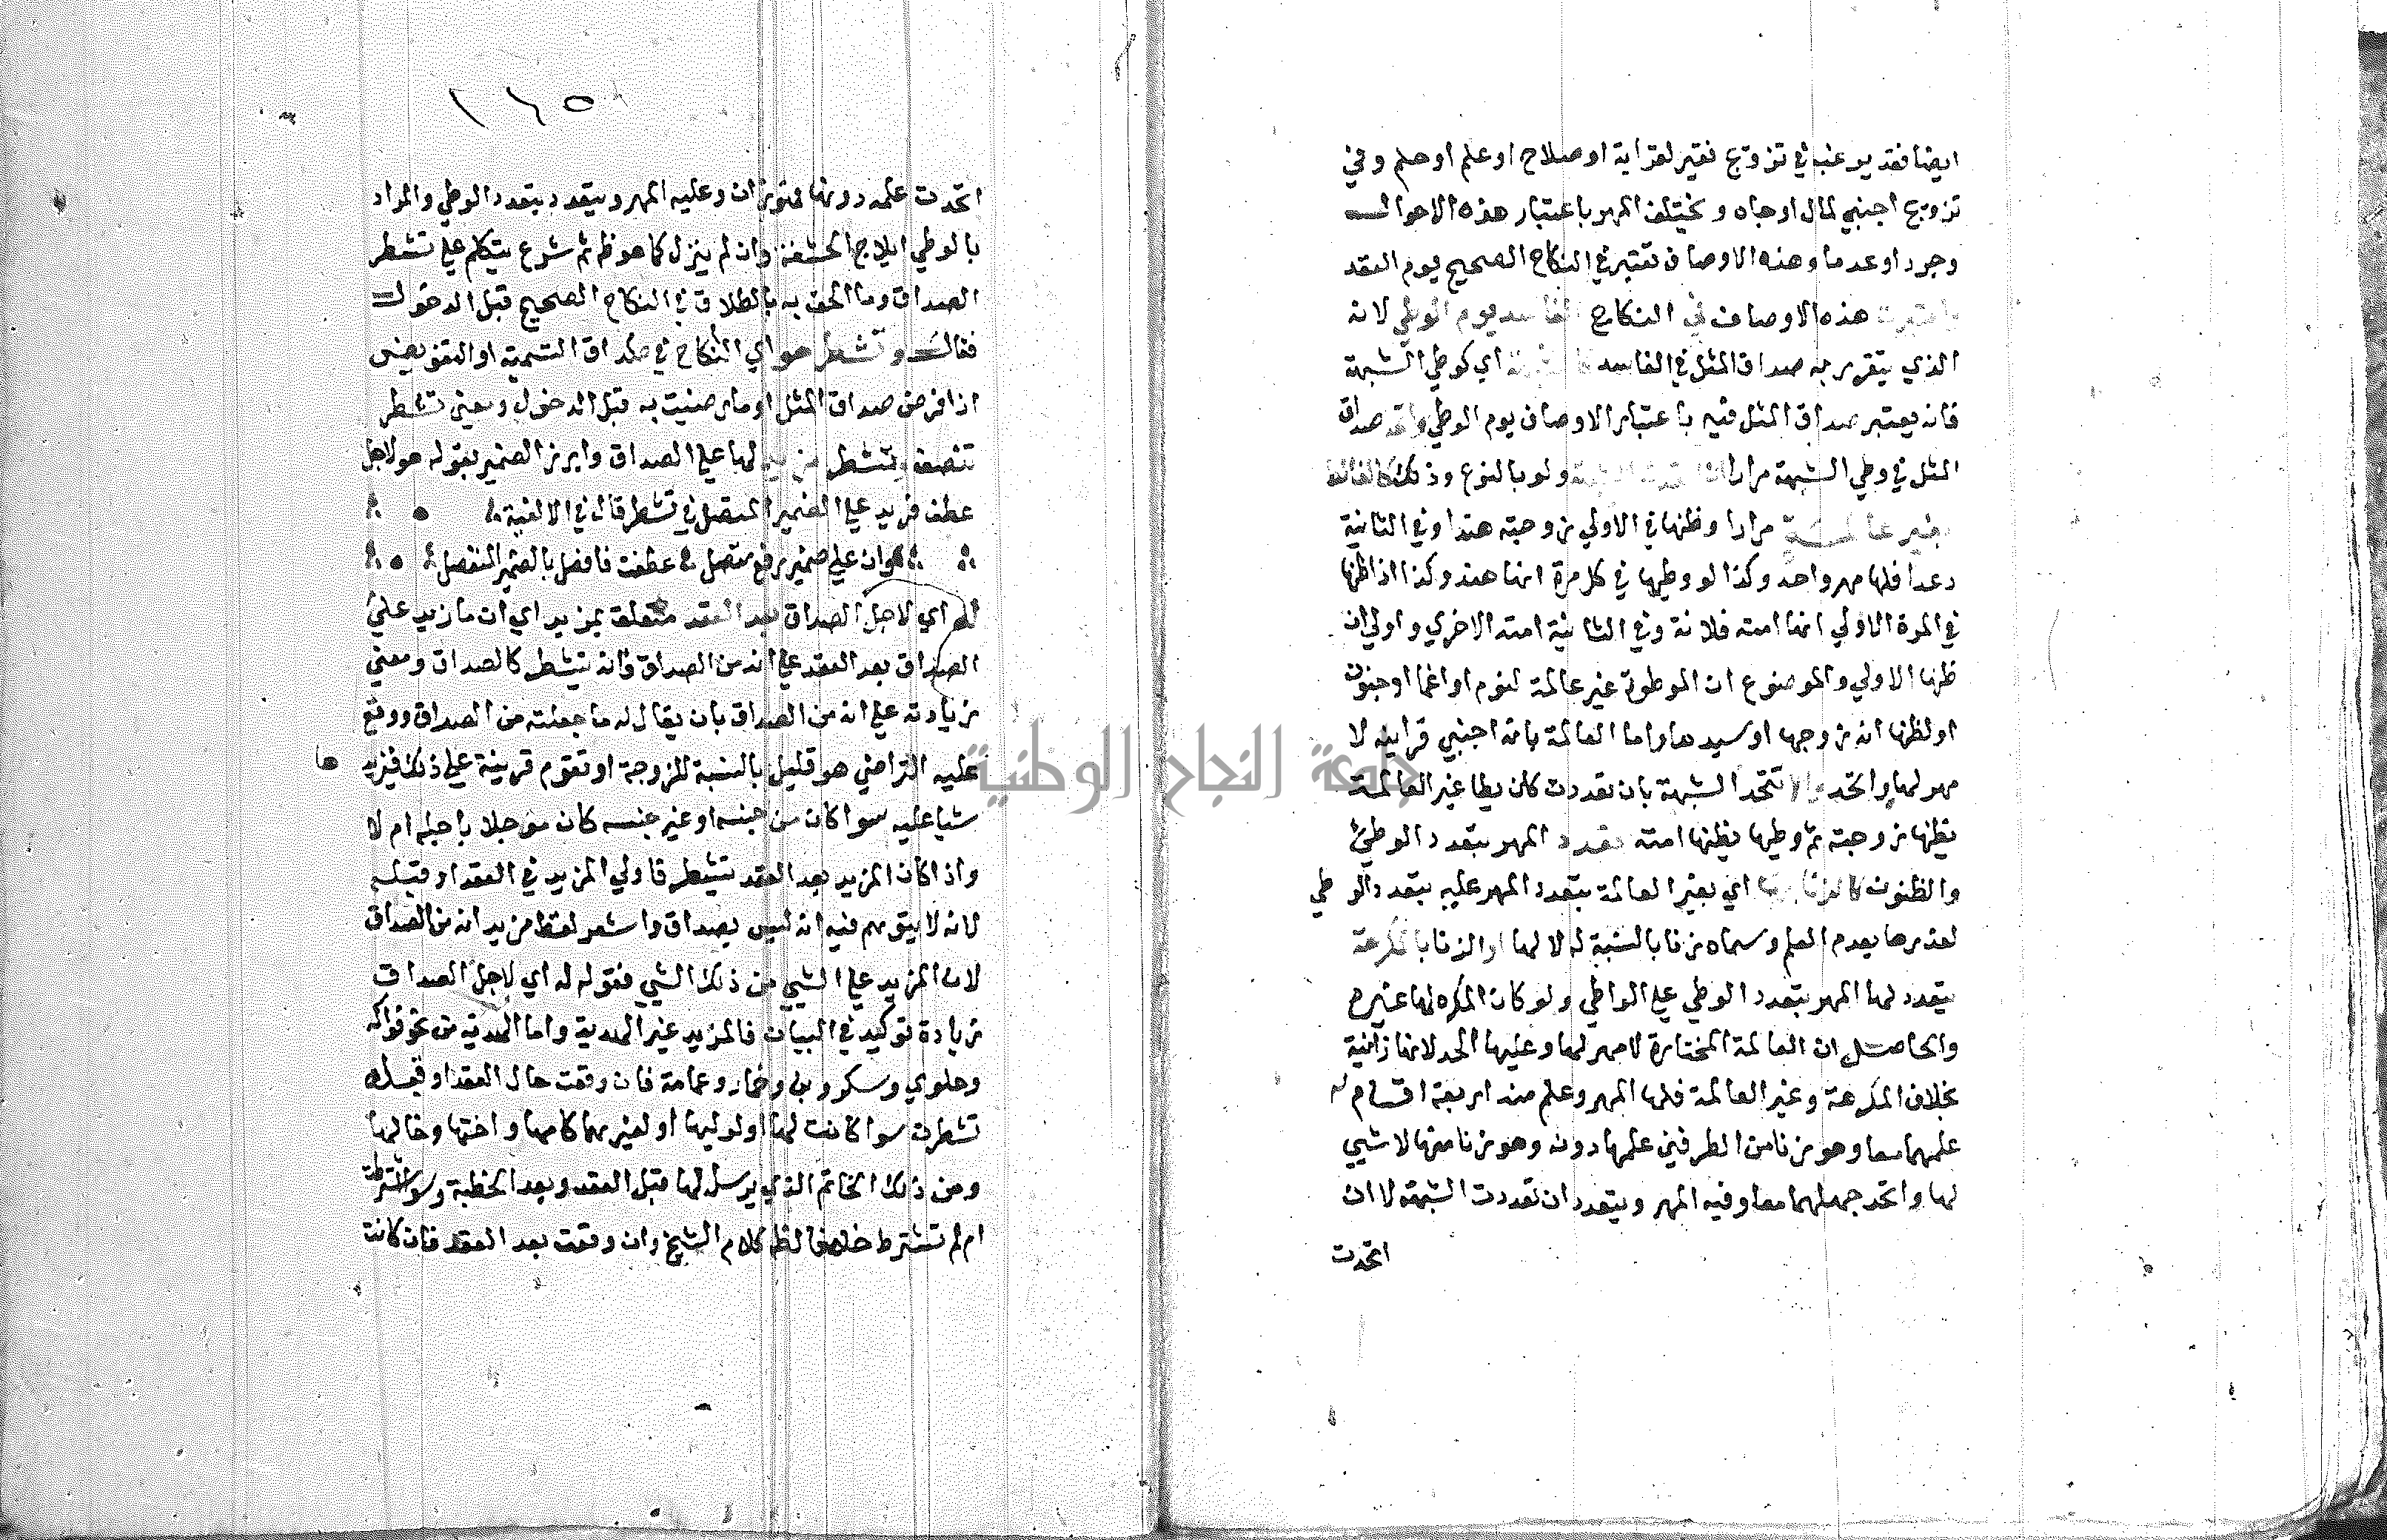 ايضا فقد يرغب في تزويج فقير لقرابة او صلاح او علم او حلم وفي
تزويج اجنبي لمال او جاه ويختلف المهر باعتبار هذه الاحوال
وجودا وعدما وهذه الاوصاف تعتبر في النكاح الصحيح يوم العقد
هذه الاوصاف في النكاح يوم الوطي لانه
الذي يتقرر به صداق المثل في الفاسد اي كوطي الشبهة
فانه يعتبر صداق المثل فيه باعتبار الاوصاف يوم الوطي صداق
المثل في وطي الشبهة مرارا ولو بالنوع وذلك كالغالط
بغير عالمة مرارا وظنها في الاولي زوجته هندا وفي الثانية
دعدا فلها مهر واحد وكذا لو وطيها في كل مرة انها هند وكذا اذا ظنها
في المرة الاولي انها امته فلانة وفي الثانية امته الاخري و
ظنها الاولي والموضوع ان الموطوة غير عالمة لنوم او اغما او جنون
او لظنها انه زوجها او سيدها واما العالمة بانه اجنبي لا
مهر لها تتحد الشبهة بان تعددت كان يطا غير العالمة
يظنها زوجته ثم وطيها يظنها امته المهر بتعدد الوطي
والظنون كالزنا اي بغير العالمة يتعدد المهر عليه بتعدد الوطي
لعذرها بعدم العلم وسماه زنا بالنسبة له لا لها او الزنا بالمكرهة
يتعدد لها المهر بتعدد الوطي علي الواطي ولو كان المكره لها غيره
والحاصل ان العالمة المختارة لا مهر لها وعليها الحد لانها زانية
بخلاف المكرهة وغير العالمة فلها المهر وعلم منه اربعة اقسام
علمهما معا وهو زنا من الطرفين علمها دونه وهو زنا منها لا شيي
لها واتحد جهلهما معا وفيه المهر ويتعدد ان تعددت الشبهة لا ان
اتحدت
١٦٥
اتحدت علمه دونها فهو زان وعليه المهر ويتعدد بتعدد الوطي والمراد
بالوطي ايلاج الحشفة وان لم ينزل كما هو ظ ثم شرع يتكلم علي تشطر
الصداق وما الحق به بالطلاق في النكاح الصحيح قبل الدخول
فقال وتشطر هو اي النكاح في صداق التسمية او التفويض
اذا فرض صداق المثل او ما رضيت به قبل الدخول ومعني تشطر
تنصف وتشطر مزيد لها علي الصداق وابرز الضمير بقوله هو لاجل
عطف مزيد علي الضمير المتصل في تشطر قال في الالفية
وان علي ضمير رفع متصل عطفت فافصل بالضمير المنفصل
له اي لاجل الصداق بعد العقد متعلق بمزيد اي ان ما زيد علي
الصداق بعد العقد علي انه من الصداق فانه يتشطر كالصداق ومعني
زيادته علي انه من الصداق بان يقال له ما جعلته من الصداق ووقع
عليه التراضي هو قليل بالنسبة للزوجة او تقوم قرينة علي ذلك فيزيدها
شيا عليه سوا كان من جنسه او غير جنسه كان موجلا باجله ام لا
واذا كان المزيد بعد العقد يتشطر فاولي المزيد في العقد او قبله
لانه لا يتوهم فيه انه ليس بصداق واشعر لفظ مزيد انه من الصداق
لان المزيد علي الشيي من ذلك الشيي فقوله له اي لاجل الصداق
زيادة توكيد في البيان فالمزيد غير الهدية واما الهدية من نحو فواكه
وحلوي وسكر وبن وخمار وعمامة فان وقعت حال العقد او قبله
تشطرت سوا كانت لها او لوليها او لغيرهما كامها واختها وخالها
ومن ذلك الخاتم الذي يرسل لها قبل العقد وبعد الخطبة وسوا اشترطت
ام لم تشترط خلافا لظ كلام الشيخ وان وقعت بعد العقد فان كانت